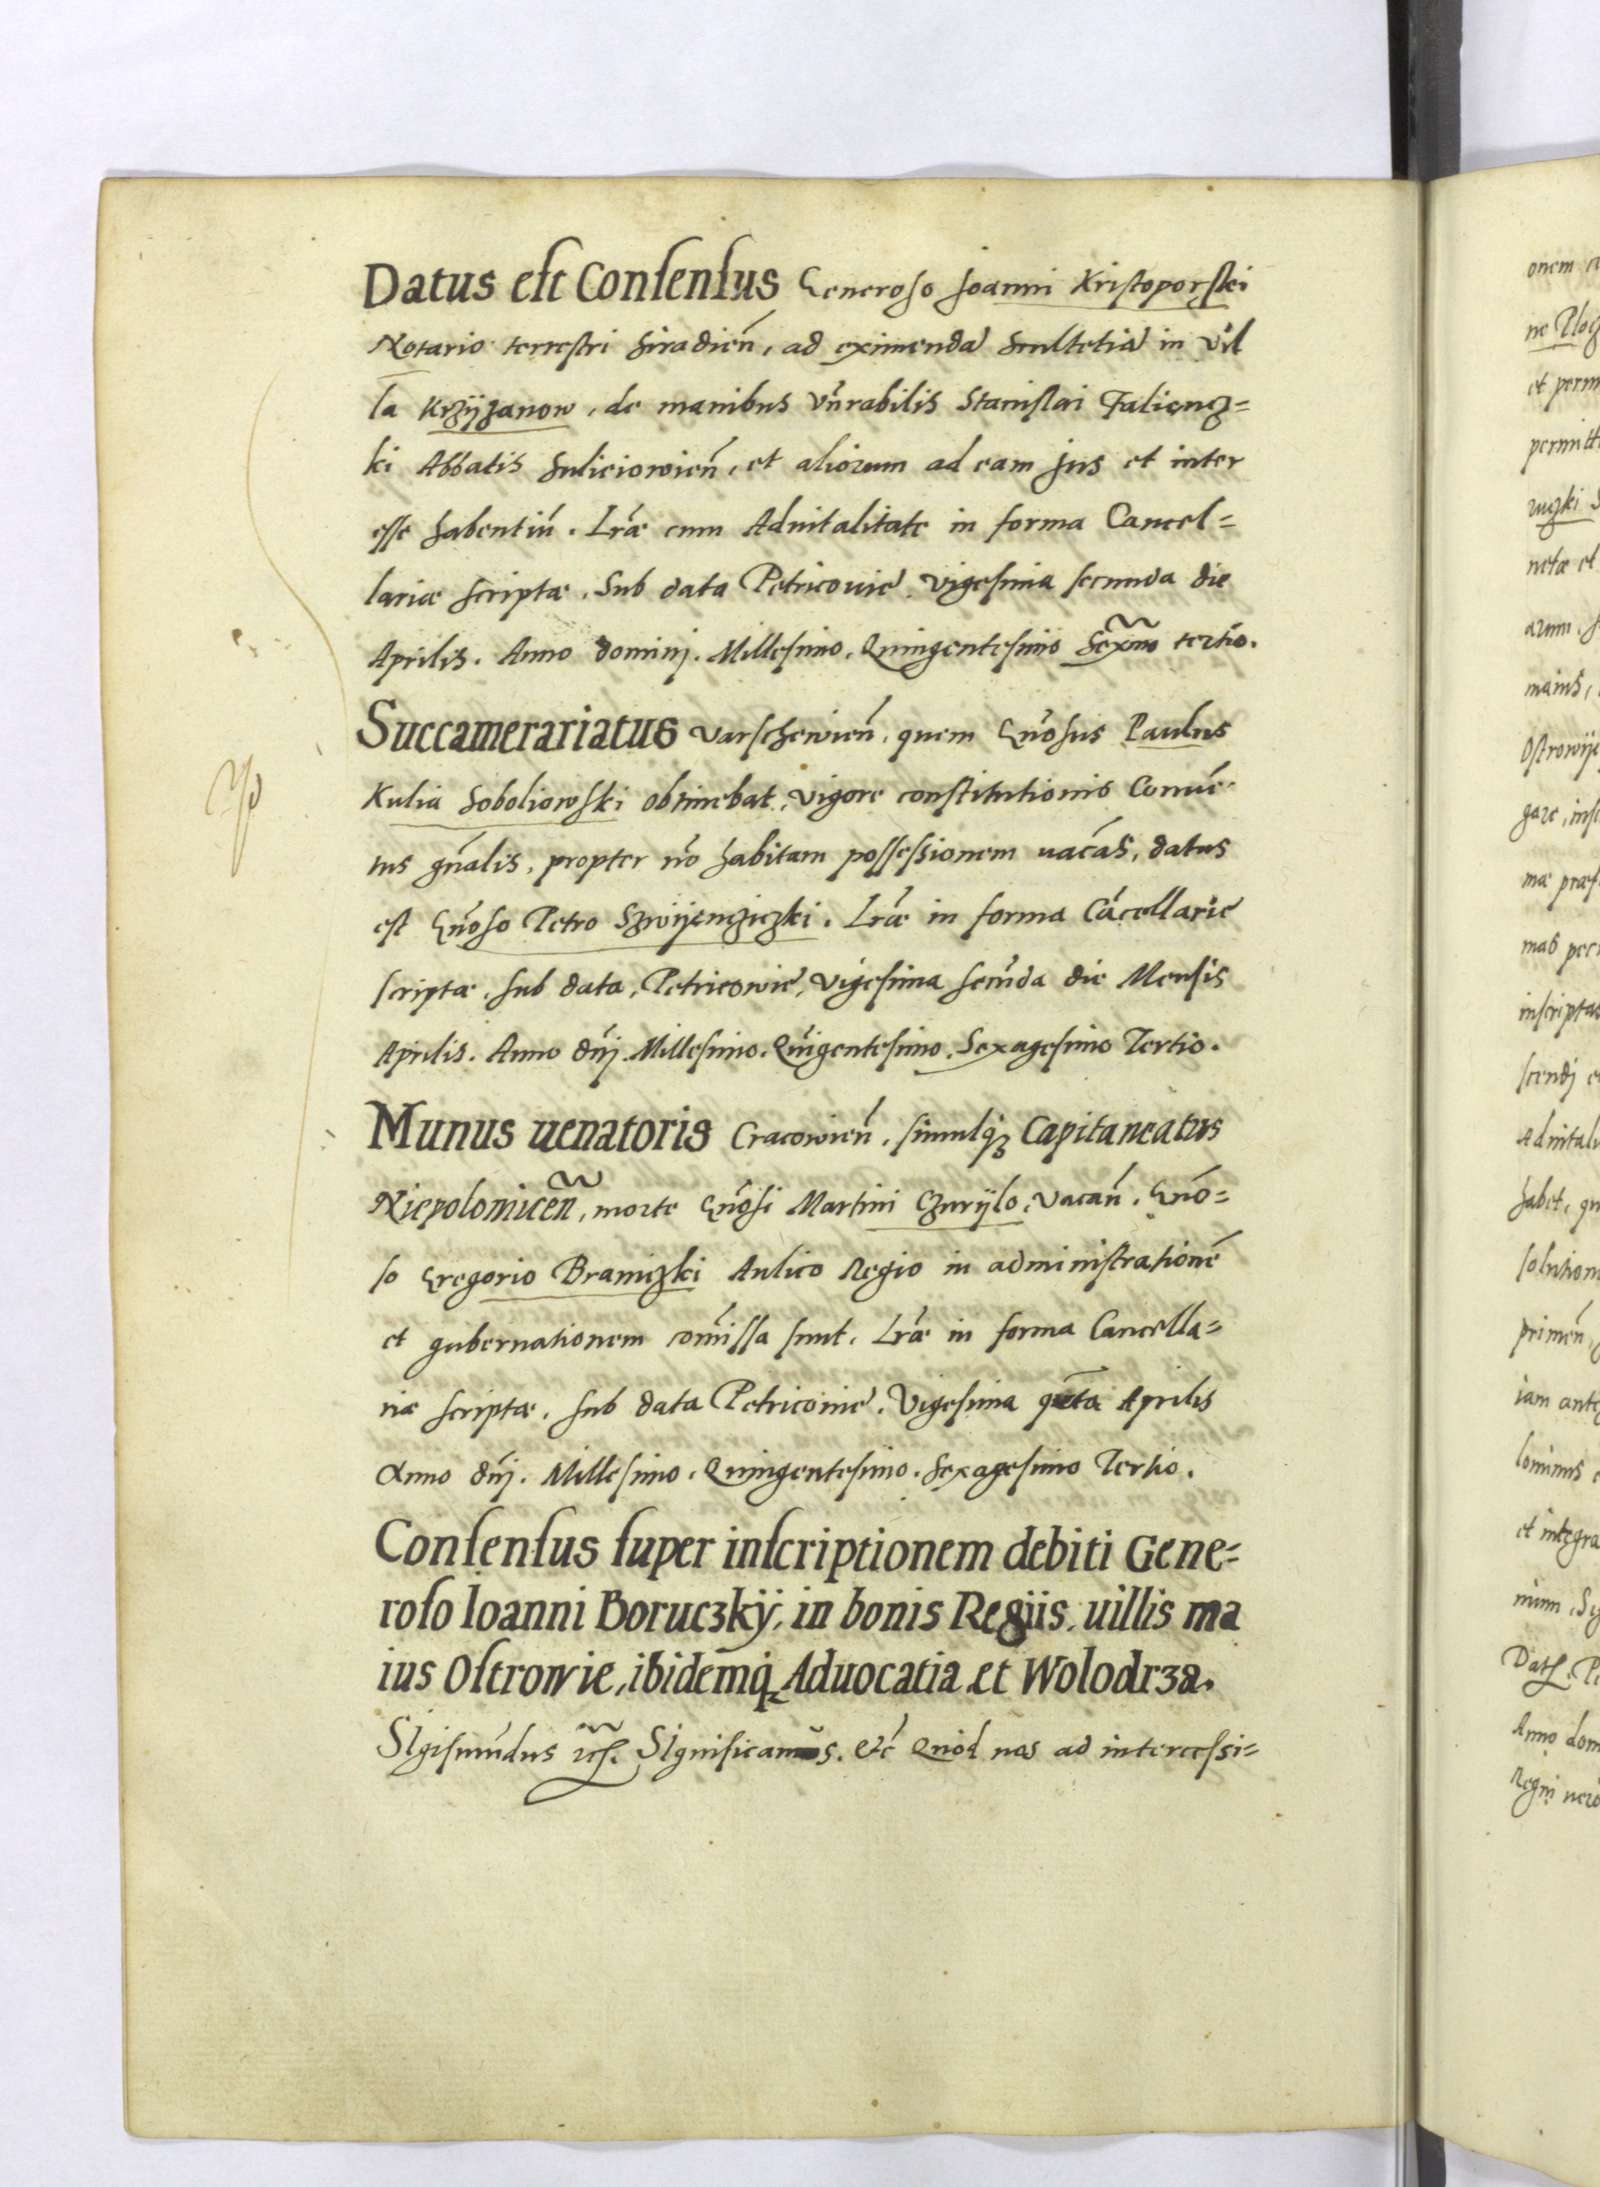 Datus est Consensus Generoso Joanni Kristoporski
Notario terrestri Siradien̄, ad eximendā scultetiā in vil
la Krzyżanow, de manibus Vn̄rabilis Stanislai Falięcz=
ki Abbatis Suliciowien̄, et aliorum ad eam jus et inter
esse habentiū. Lr̄æ cum Aduitalitate in forma Cancel=
lariæ scriptæ. Sub data Petricouie. Vigesima secunda die
Aprilis. Anno dominj. Millesimo. Quingentesimo Sex̄mo tertio.
Succamerariatus Varschewien̄. quem Gn̄osus Paulus
Kulia Soboliowski obtinebat, vigore constitutionis Conuē
tus gn̄alis, propter nō habitam possessionem uacās, datus
est Gn̄oso Petro Szwijęnczjczki. Lr̄æ in forma Cācellarie
scriptæ. sub data, Petricowie, Vigesima secūda die Mensis
Aprilis. Anno dn̄j. Millesimo. Quīgentesimo. Sexagesimo Tertio.
Munus uenatoris Cracowien̄. simulq́ꝫ Capitaneatus
Niepolomicen̄, morte Gn̄osi Martini Czurijlo, vacan̄. Gn̄o=
so Gregorio Braniczki Aulico Regio in administrationē
et gubernationem com̄issa sunt. Lr̄æ in forma Cancella=
riæ scriptæ. sub data Petricouie. Vigesima quīta Aprilis
Anno dn̄j. Millesimo. Quingentesimo. Sexagesimo Tertio.
Consensus super inscriptionem debiti Gene=
roso Ioanni Boruczkÿ, in bonis Regiis, uillis ma
ius Ostrowie, ibidemq́ꝫ Aduocatia et Wolodrza.
SIgismūdus etc. SIgnificamus. etc̄ Quod nos ad intercessi=
onem
ne Ploc
et perm
permitt
ruczki
netæ et
arum,
maius,
Ostrowije
gare, ins
mæ præs
mas pec
inscriptas
scendj e
Aduitali
habet, qu
solution
primen̄,
iam ante
lominus
et integra
mum, Sy
Dat̄. Pe
Anno dom
Regni uero